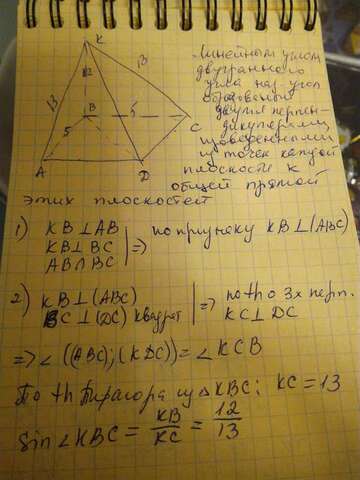 K
13
12
13
B
5
5
C
A
D
Линейным углом
двугранного
угла наз. угол
образованный
двумя перпен-
дикулярами,
проведенными
из точек каждой
плоскости к
общей прямой
этих плоскостей
1) KB⊥AB
KB⊥BC
AB∩BC
=> по признаку KB⊥(ABC)
2) KB⊥(ABC)
BC⊥(DC) квадрат
=> по th о 3х перп.
KC⊥DC
=> ∠((ABC);(KDC))=∠KCB
По th Пифагора из △KBC: KC=13
Sin∠KBC = KB/KC = 12/13